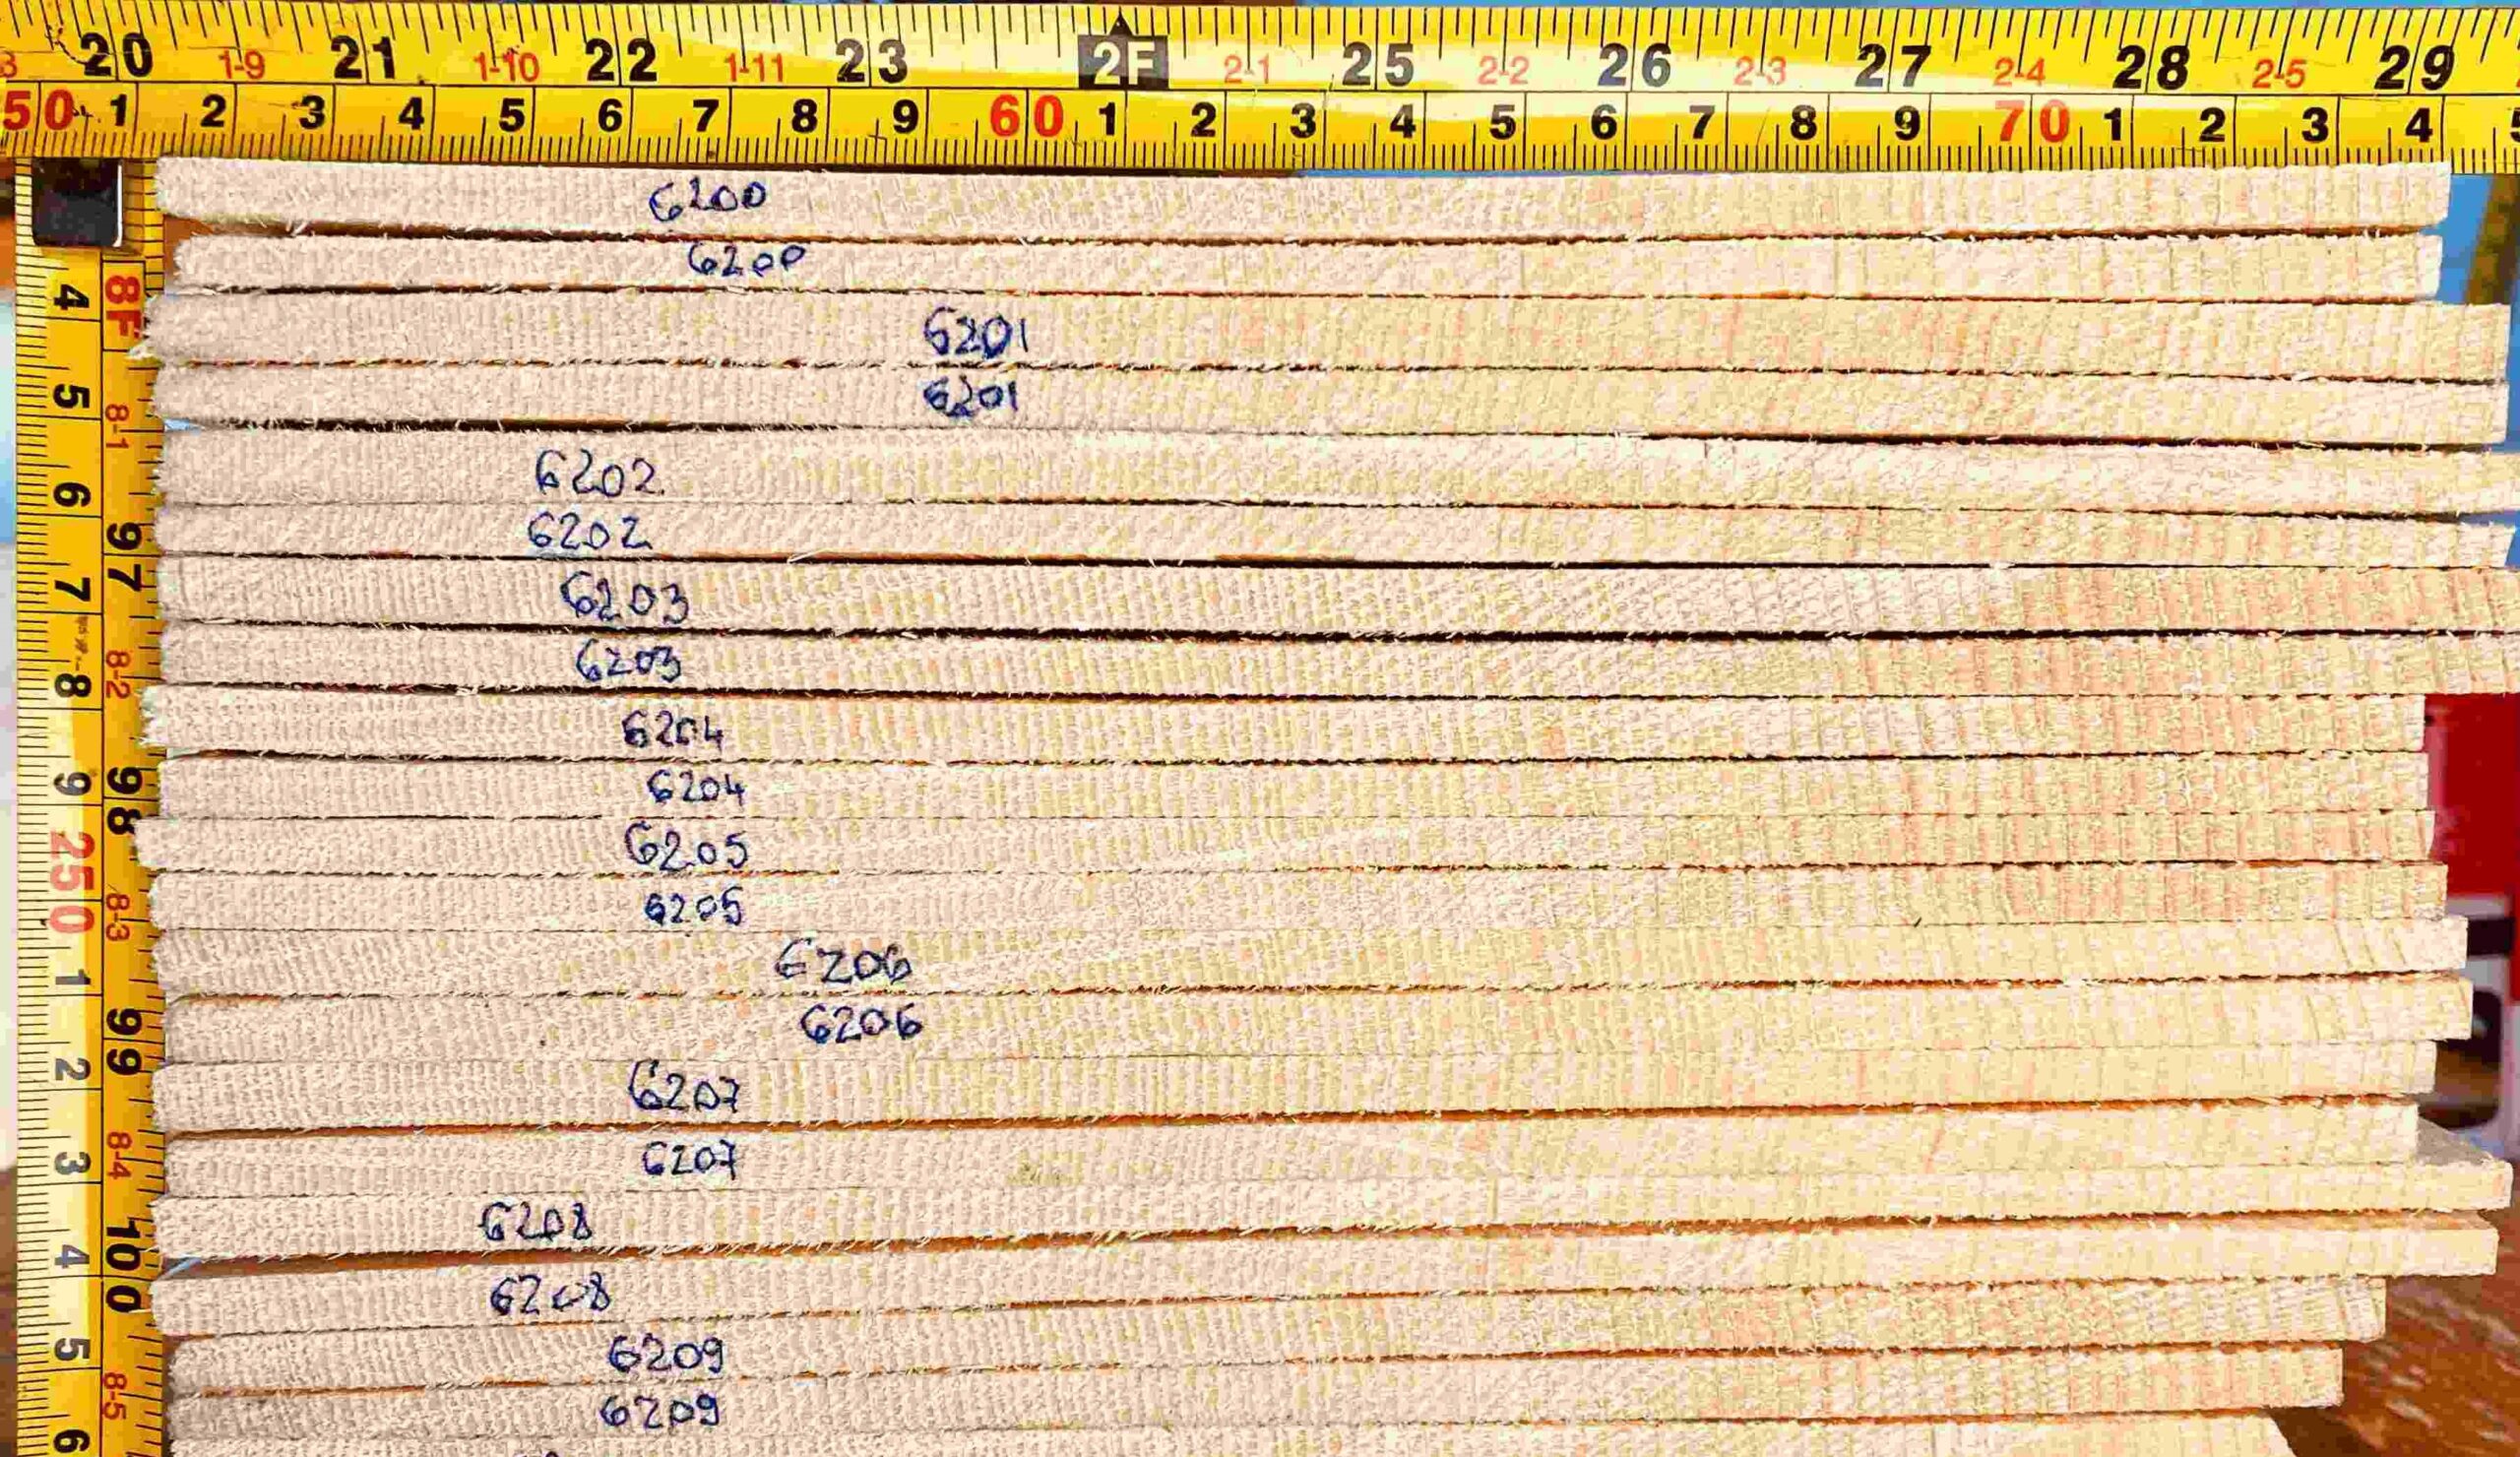 20 1-9 21 1-10 22 1-11 23 2F 2-1 25 2-2 26 2-3 27 2-4 28 2-5 29
50 1 2 3 4 5 6 7 8 9 60 1 2 3 4 5 6 7 8 9 70 1 2 3 4
6200
6200
6201
6201
6202
6202
6203
6203
6204
6204
6205
6205
6206
6206
6207
6207
6208
6208
6209
6209
8F 8-1 97 8-2 98 8-3 99 8-4 100 8-5
4 5 6 7 8 9 250 1 2 3 4 5 6